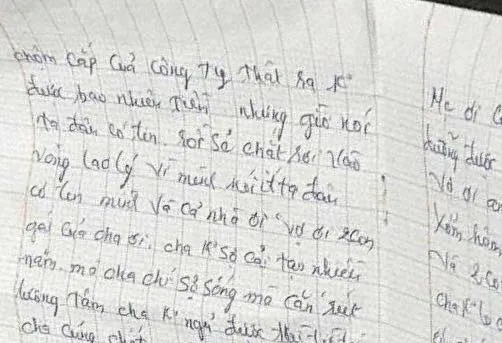 chôm cắp Của Công Ty Thật Ra K°
được bao nhiêu Tiền nhưng giờ nói
ta đâu có tin. rồi sẽ chết rơi Vào
Vòng lao lý Vì mình nói người ta đâu
có tin mình Và Cả nhà ơi Vợ ơi 2 con
gái Của cha ơi, cha K° sợ Cái tạo nhiều
năm. mà cha chỉ sợ sống mà Cắn rứt
lương Tâm cha K° ngủ được
cha Cũng chết
Mẹ ơi
được
Vợ ơi
Và 2 Co
cha K°